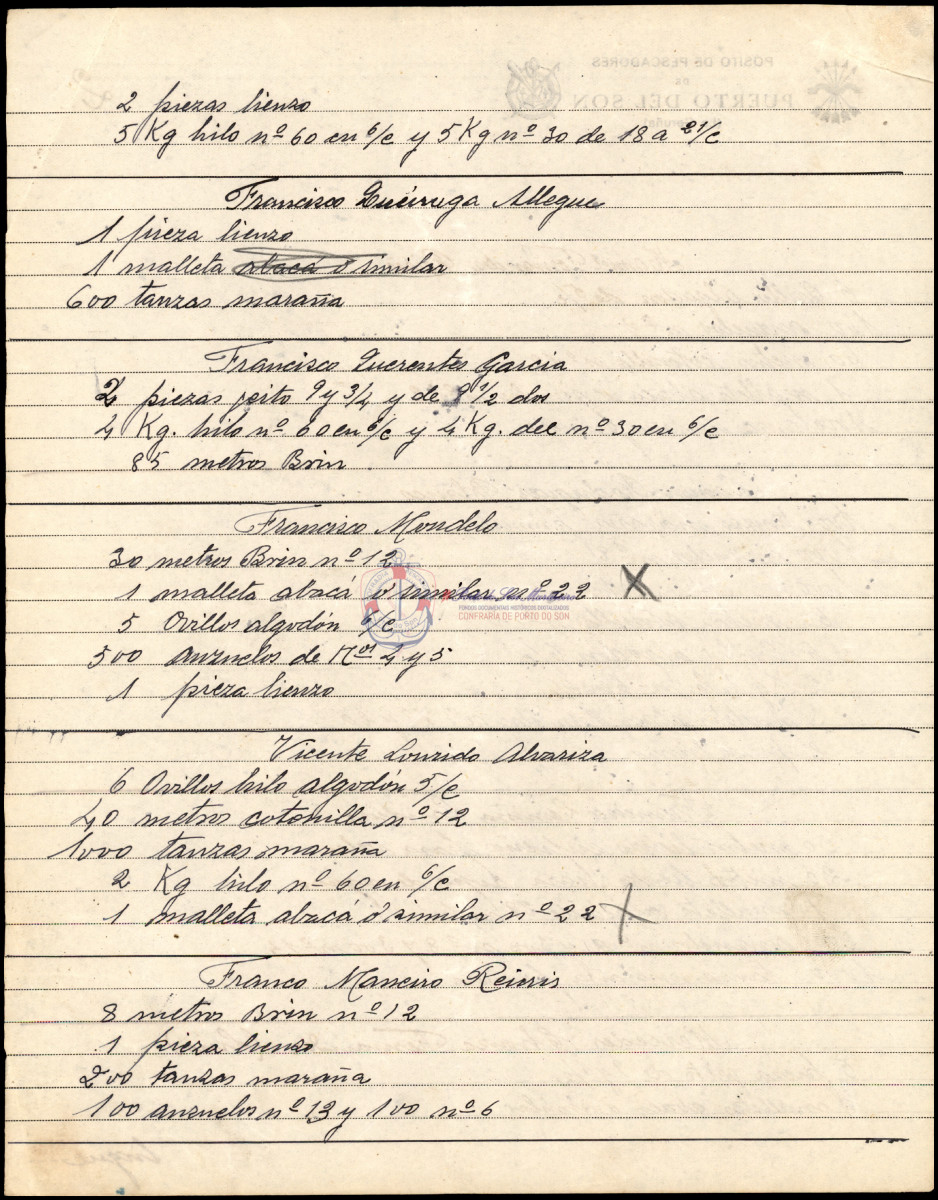 2 piezas lienzo
5 Kg hilo nº 60 en 6/c y 5 Kg nº 30 de 18 a 21/c
Francisco Queiruga Allegue
1 pieza lienzo
1 malleta abacá ó similar
600 tanzas maraña
Francisco Querentes Garcia
2 piezas peito 9 y 3/4 y de 9 1/2 dos
4 Kg. hilo nº 60 en 6/c y 4 Kg. del nº 30 en 6/c
85 metros Brin
Francisco Mondelo
30 metros Brin nº 12
1 malleta abacá ó similar nº 22 X
FONDOS DOCUMENTAIS HISTÓRICOS DIXITALIZADOS
CONFRARÍA DE PORTO DO SON
5 Ovillos algodón 6/c
500 anzuelos de Nos 4 y 5
1 pieza lienzo
Vicente Lourido Alvariza
6 Ovillos hilo algodón 5/c
40 metros cotonilla nº 12
1000 tanzas maraña
2 Kg hilo nº 60 en 6/c
1 malleta abacá ó similar nº 22 X
Franco Maneiro Reiris
8 metros Brin nº 12
1 pieza lienzo
200 tanzas maraña
100 anzuelos nº 13 y 100 nº 6
POSITO DE PESCADORES
DE
PUERTO DEL SON